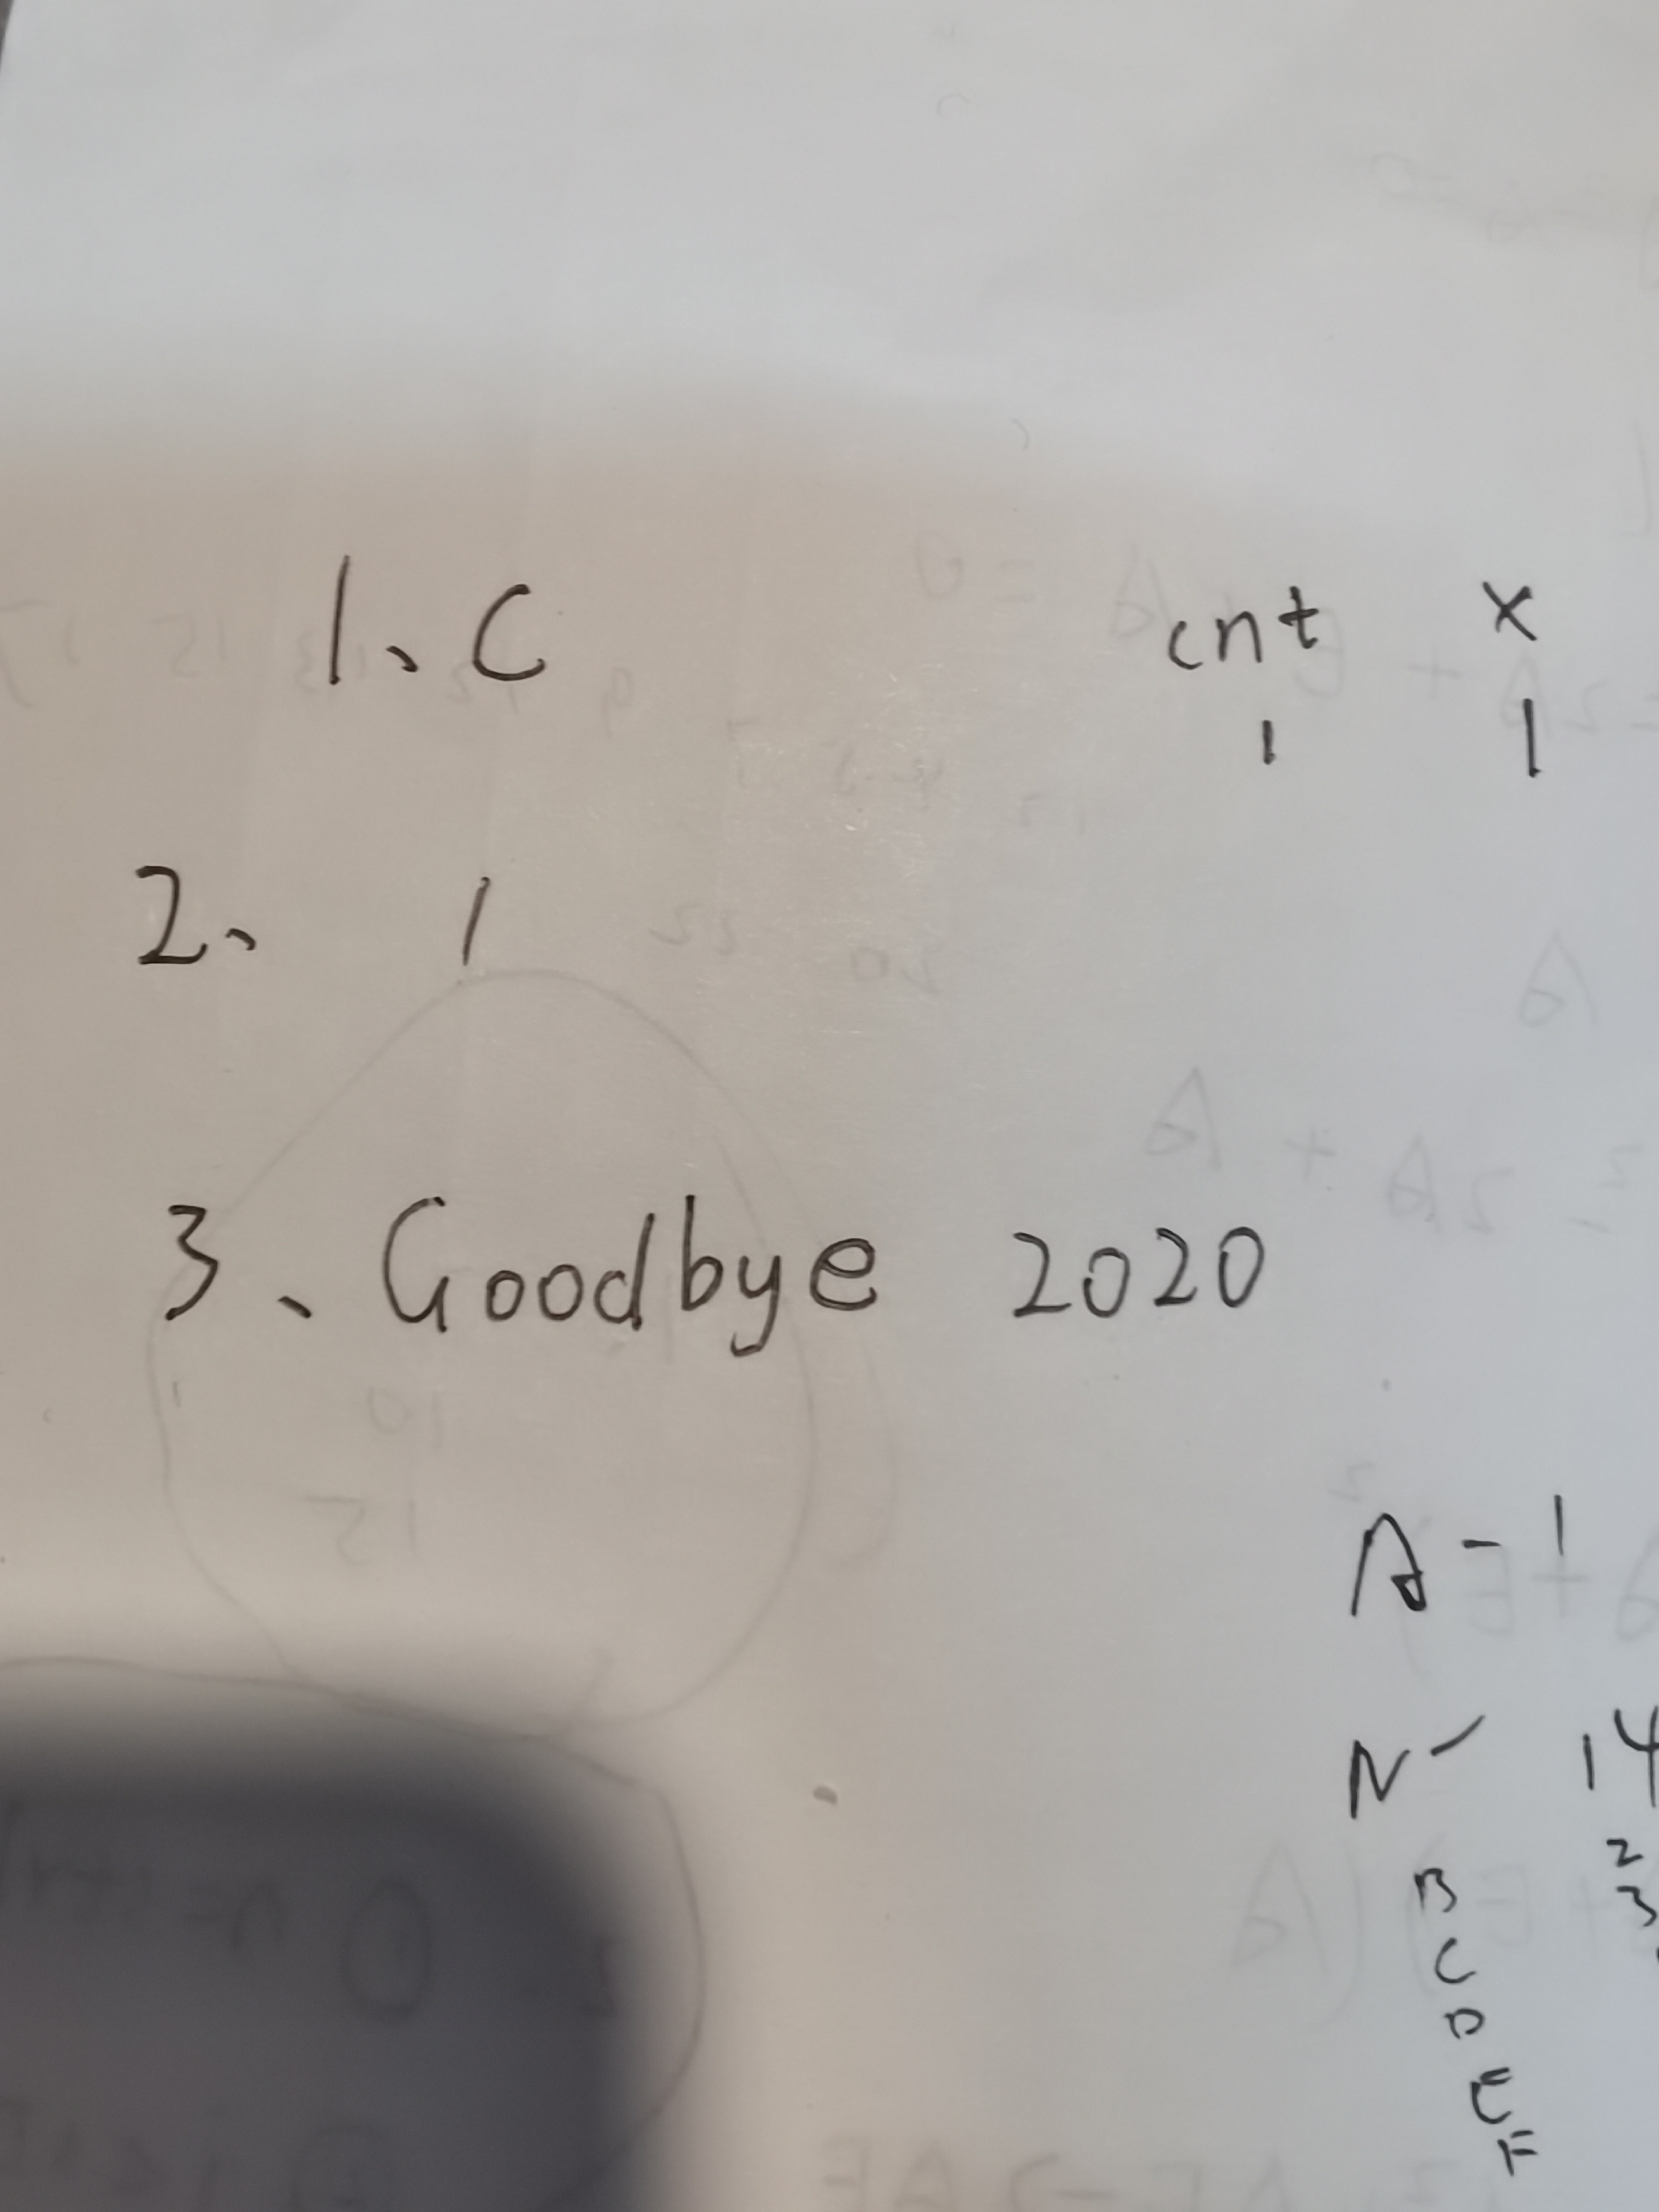 1、C
cnt x
1 1
2、 1
3、Goodbye 2020
A - 1
N - 14
B 2
C 3
D
E
F